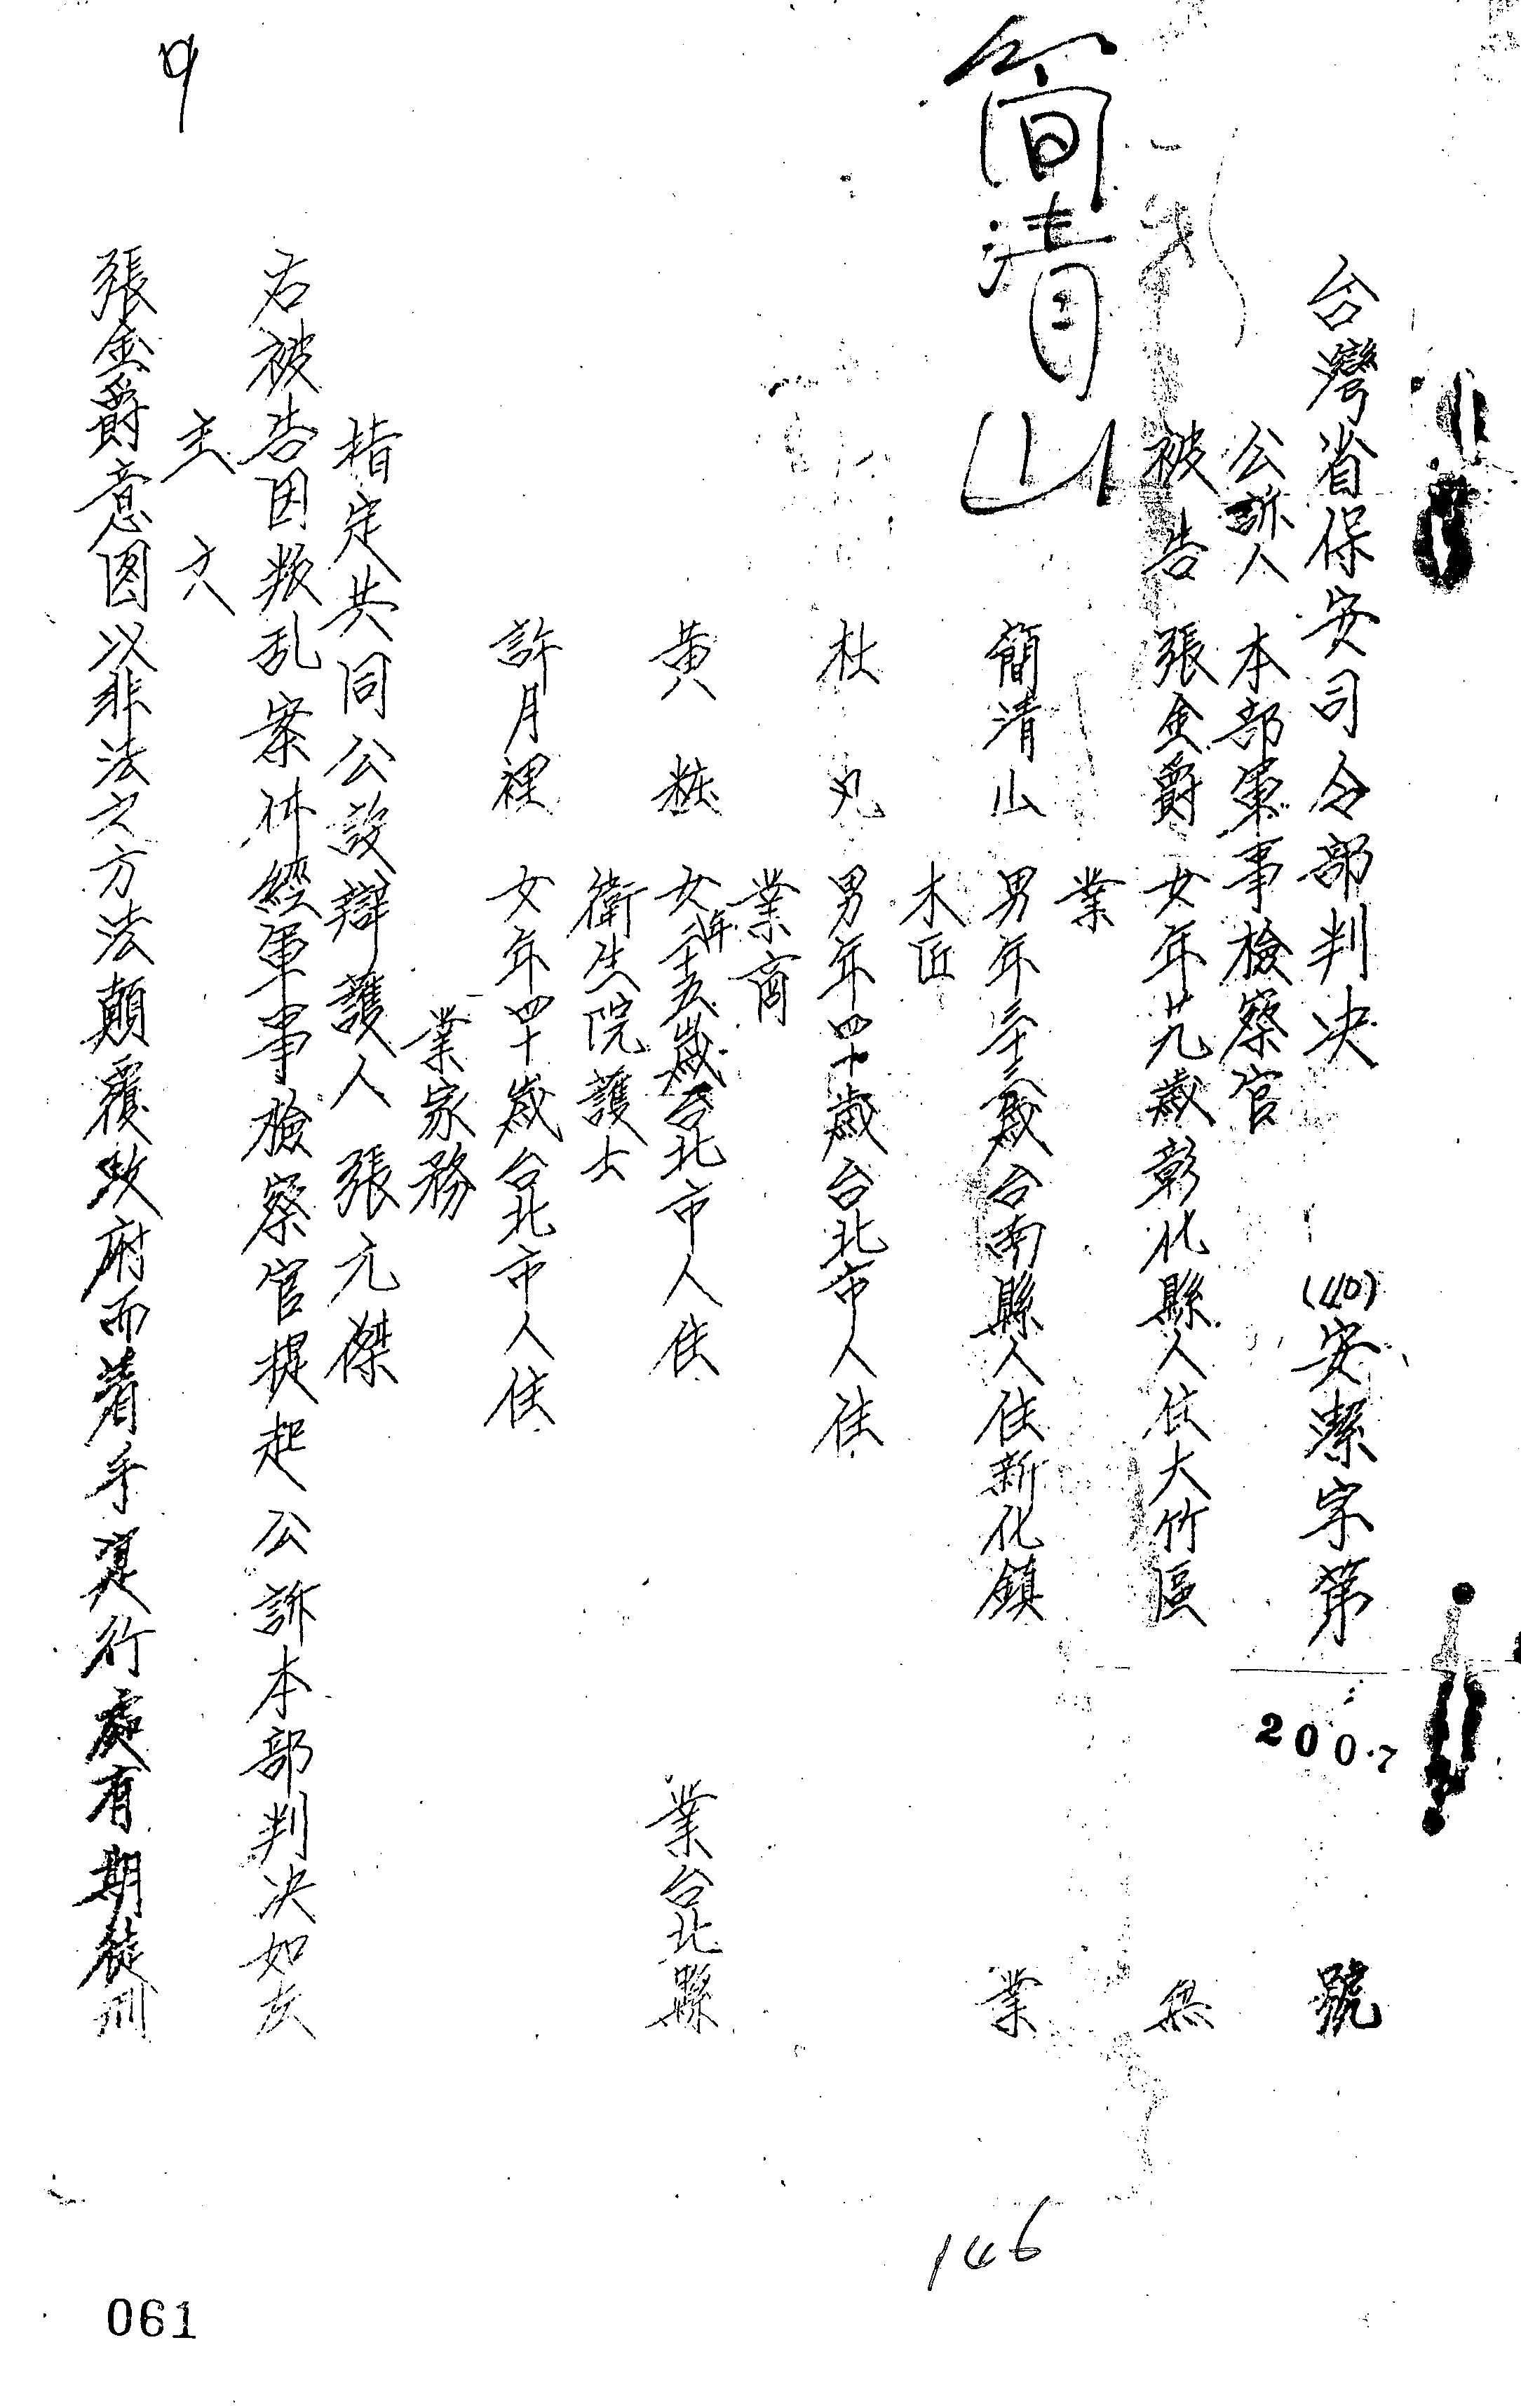 台灣省保安司令部判决 (40)安潔字第2007號
公訴人 本部軍事檢察官
被告 張金爵 女年廿九歲彰化縣人住大竹區 無
業
簡清山 男年三十三歲台南縣人住新化鎮 業
木匠
簡清山
杜丸 男年四十歲台北市人住
業商
黃粧 女年二十五歲台北市人住 業台北縣
衛生院護士
許月裡 女年四十歲台北市人住
業家務
指定共同公設辯護人 張元傑
右被告因叛乱案件經軍事檢察官提起公訴本部判决如左
主文
張金爵意圖以非法之方法顛覆政府而着手實行處有期徒刑
146
061